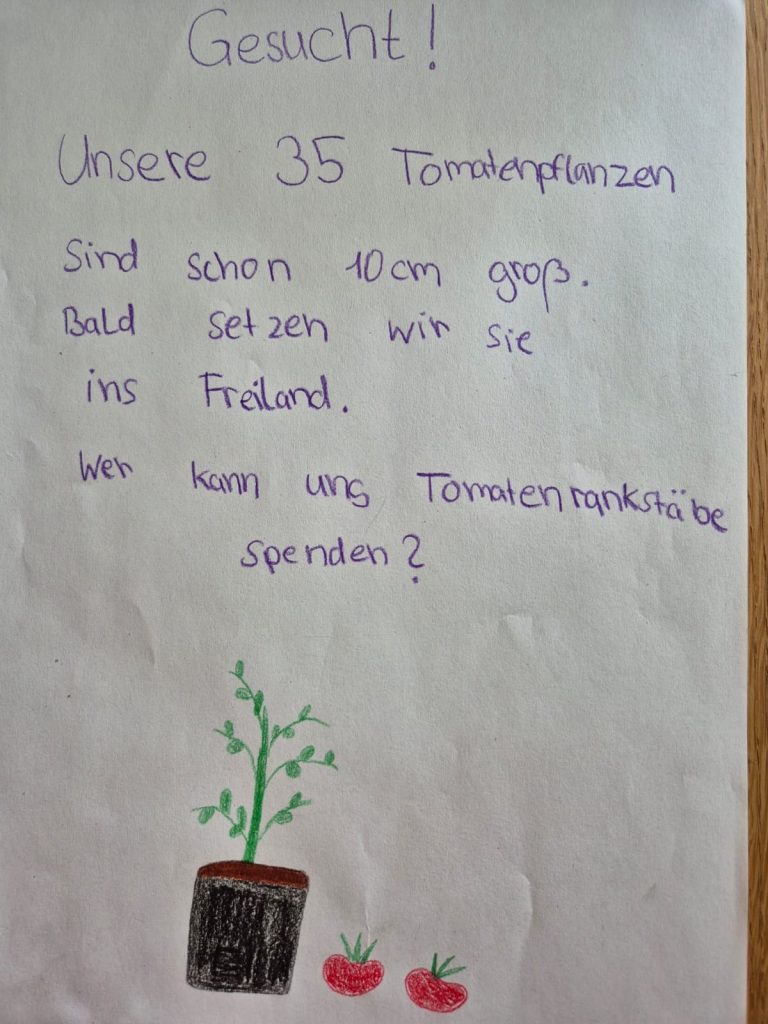 Gesucht!
Unsere 35 Tomatenpflanzen
Sind schon 10cm groß.
Bald setzen wir sie
ins Freiland.
Wer kann uns Tomatenrankstäbe
spenden?